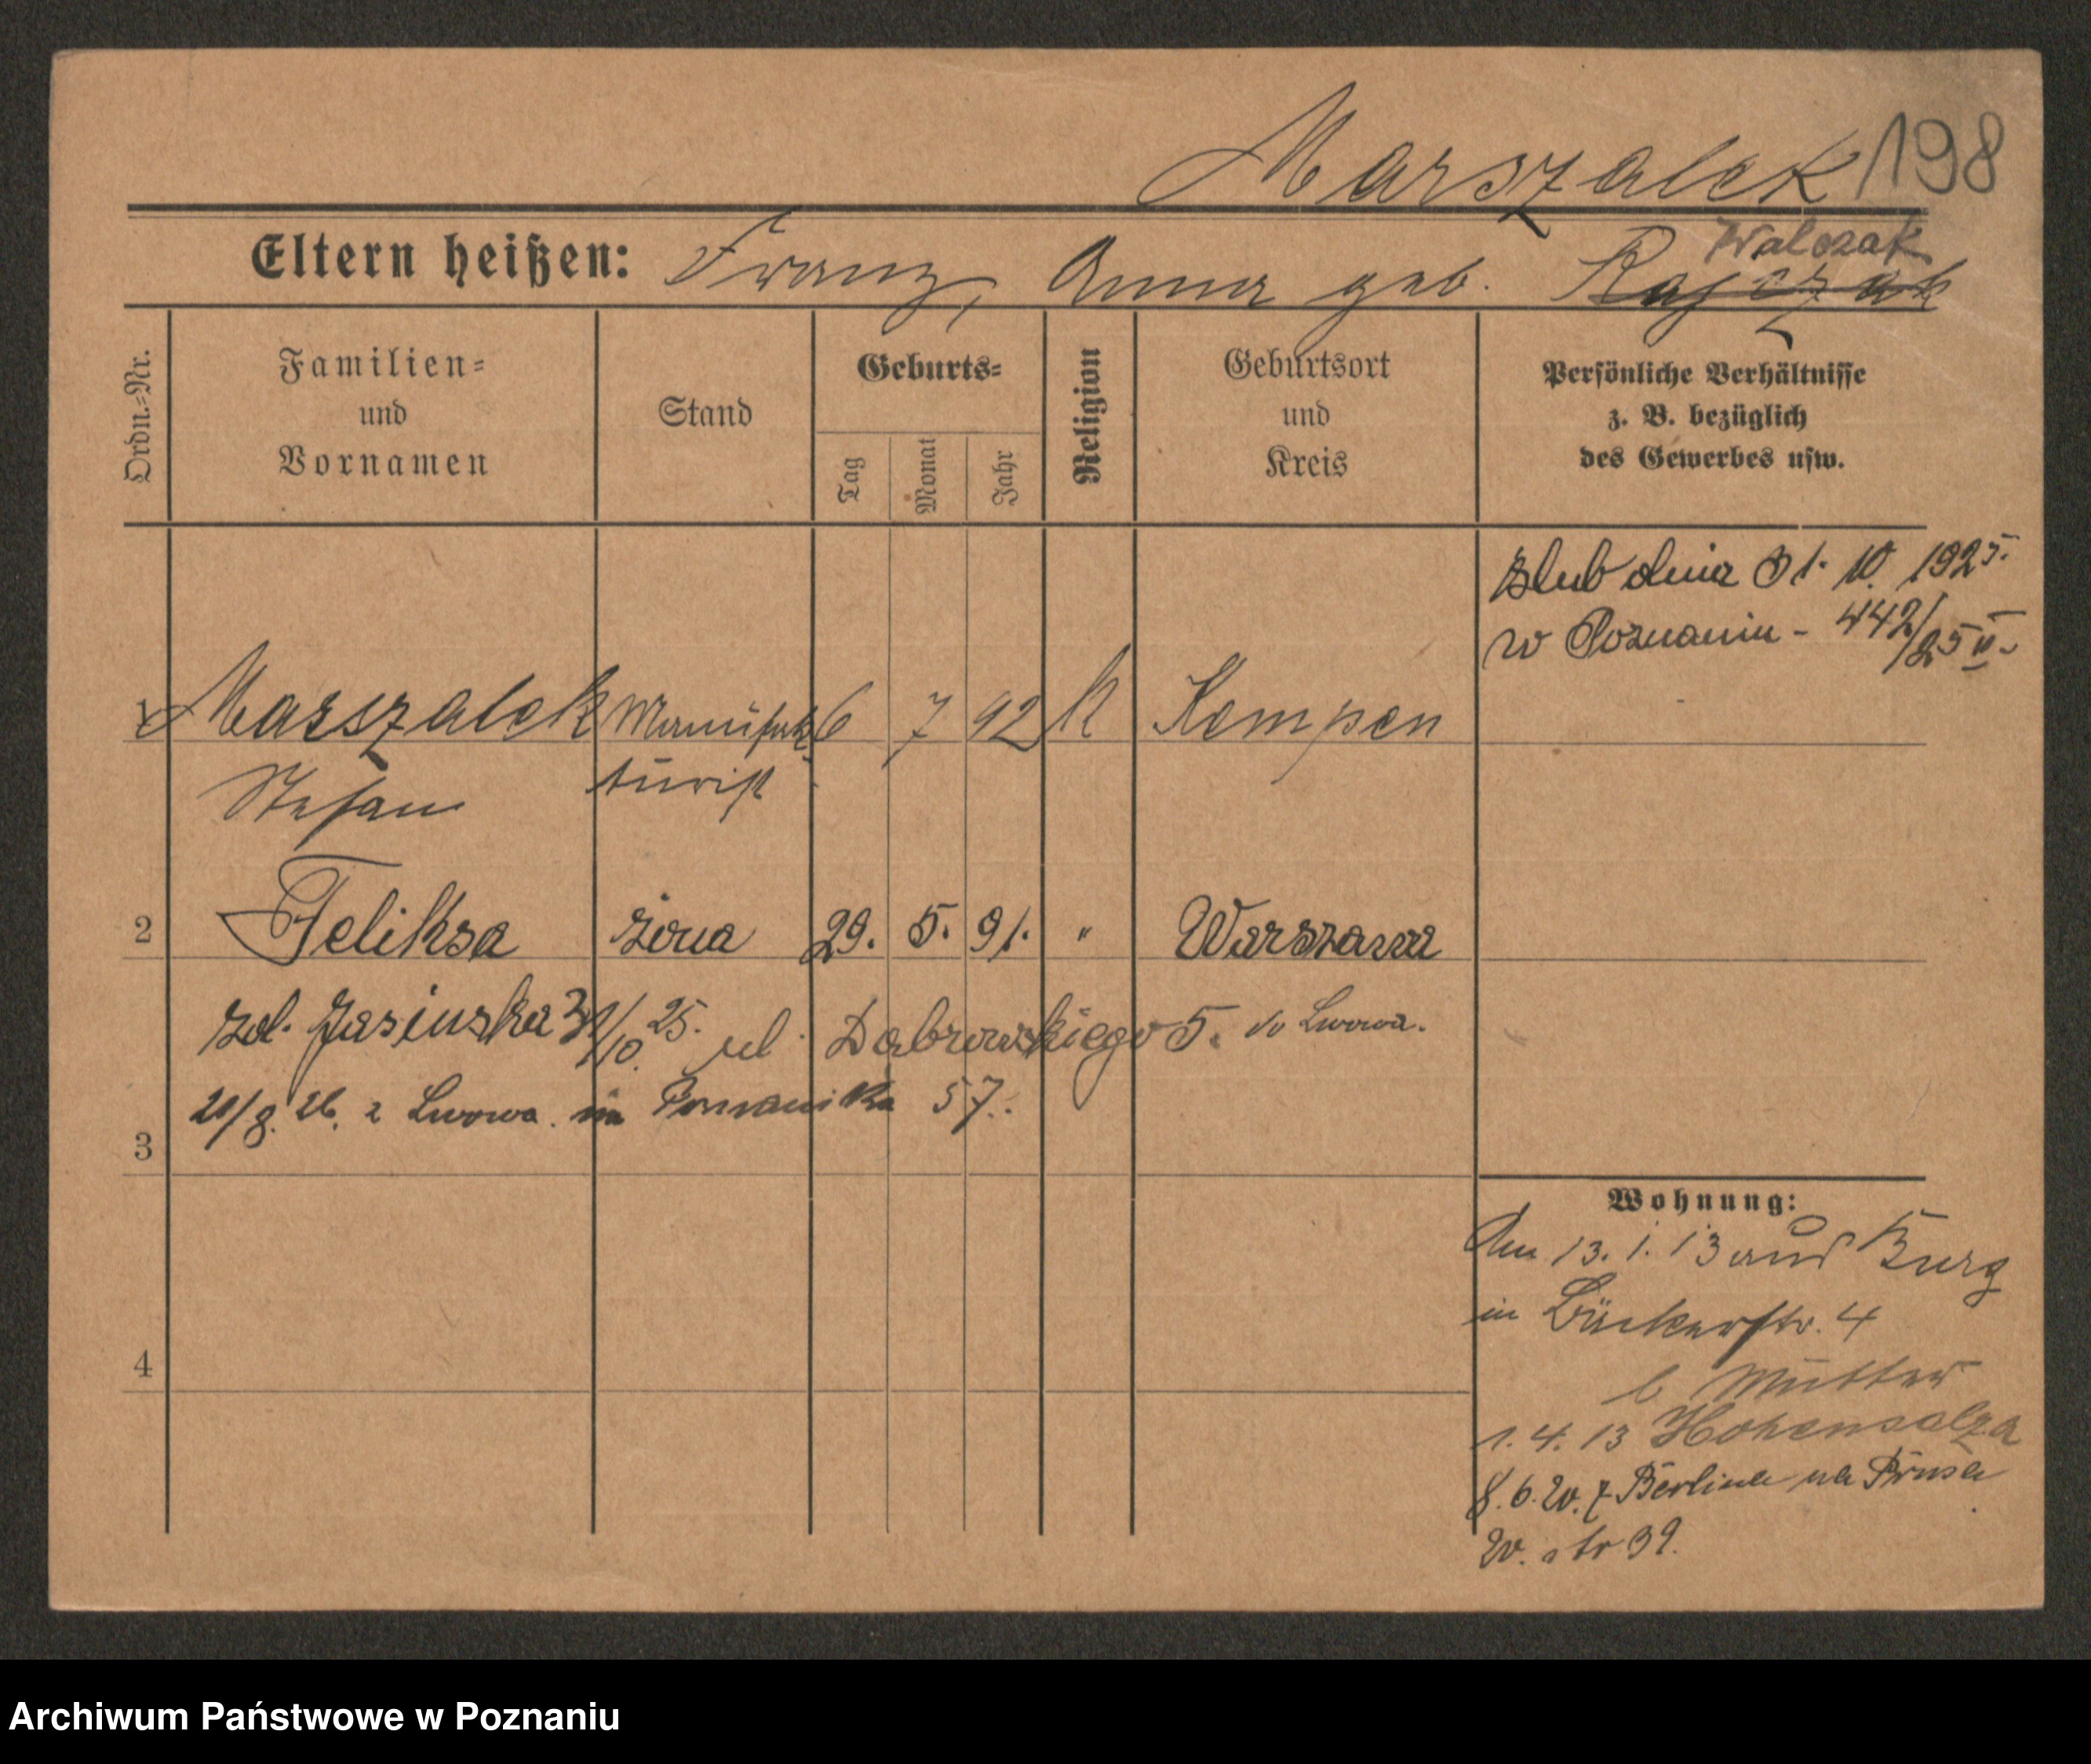 Marszalek 198
Walczak
Eltern heißen: Franz, Anna geb. Rajczak
Ordn.=Nr.
Familien=
und
Vornamen
Stand
Geburts=
Tag
Monat
Jahr
Religion
Geburtsort
und
Kreis
Persönliche Verhältnisse
z. B. bezüglich
des Gewerbes usw.
ślub dnia 31. 10. 1925.
w Poznaniu - 442/25 II.
1 Marszalek Manufak 6 7 92 K Kempen
Stefan turist
2 Feliksa żona 29. 5. 91. " Warszawa
zd. Jasińska 31/10. 25. ul. Dabrowskiego 5. do Lwowa.
20/8. 26. z Lwowa. 57.
3
4
Wohnung:
Am 13. 1. 13 aus Burg
in Bäckerstr. 4
b Mutter
1. 4. 13 Hohensalza
8. 6. 20. z Berlina na Prusa
20. str 39.
Archiwum Państwowe w Poznaniu